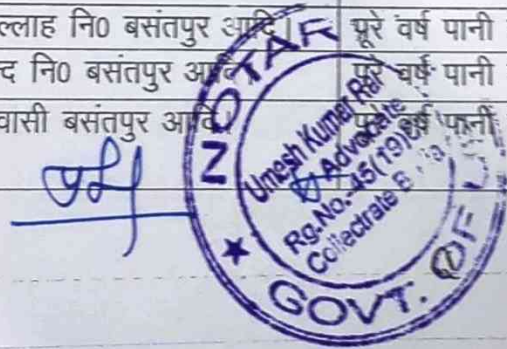 ल्लाह नि0 बसंतपुर आदि। पूरे वर्ष पानी
न्द नि0 बसंतपुर आदि पूरे वर्ष पानी
वासी बसंतपुर आदि पूरे वर्ष पानी
NOTAR
Umesh Kumar Rai
Advocate
Rg.No.-45(19)
Collectrate B
GOVT. OF U